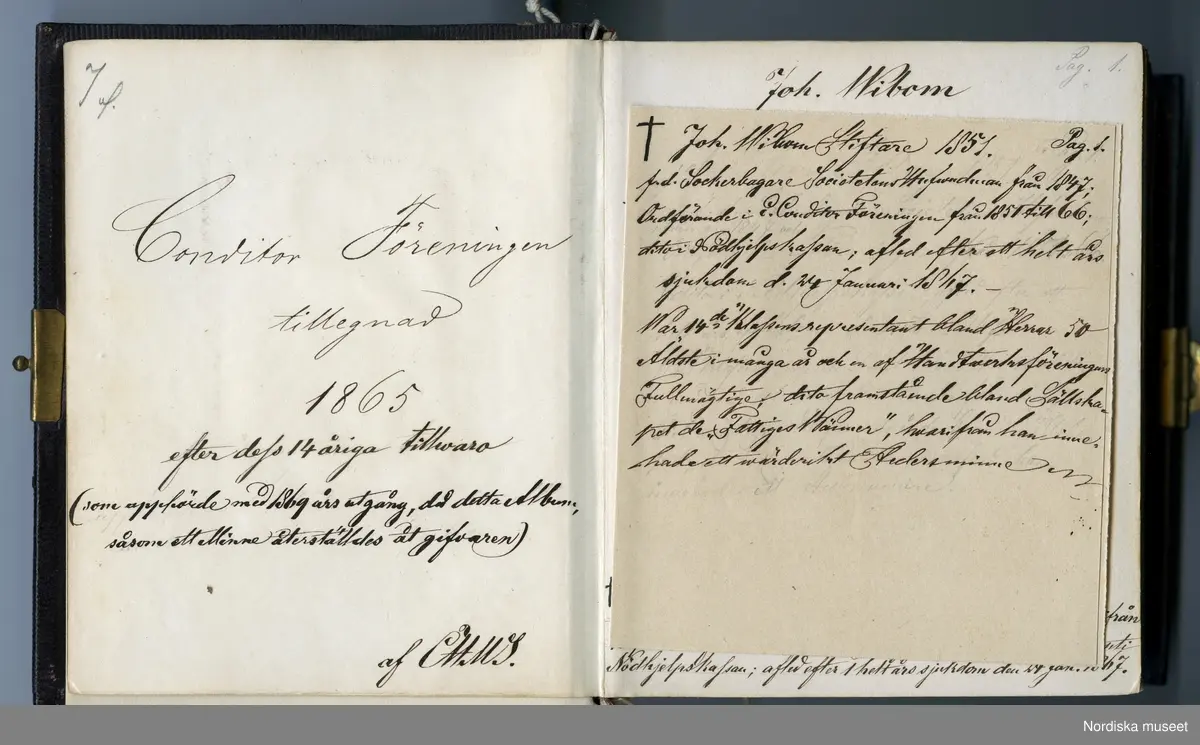 Conditor Föreningen
tillegnad
1865
efter dess 14 åriga tillwaro
(som upphörde med 1869 års utgång, då detta Album,
såsom ett Minne återställdes åt gifvaren)
af
Pag. 1.
Joh. Wibom
† Joh. Wibom Stiftare 1851. Pag. 1.
f.d. Sockerbagare Societetens Hufvudman från 1847;
Ordförande i C. Conditor Föreningen från 1851 till 66;
dito i Nödhjelpskassan; afled efter ett helt års
sjukdom d. 24 Januari 1867. —
War 14de Klassens representant bland Herrar 50
Äldste i många år och en af Handtverksföreningens
Fullmägtige, dito framstående bland Sällska-
pet de „Fattiges Wänner", hvarifrån han inne-
hade ett wärderikt Hedersminne
†
från
Nödhjelpskassan; afled efter 1 helt års sjukdom den 24 jan. 67.
Nordiska museet